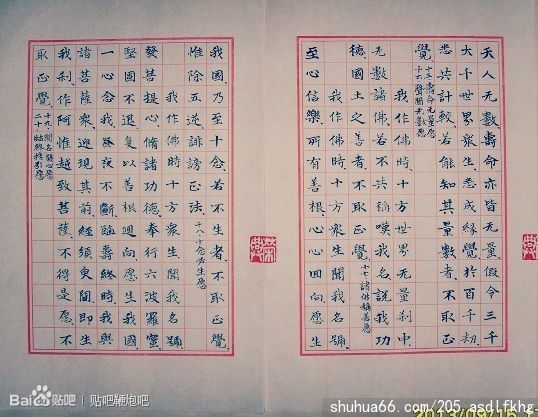 天人无數壽命亦皆无量假令三千
大千世界衆生悉成緣覺於百千劫
悉共計較若能知其量數者不取正
覺 十五壽命无量愿
十六聲聞无數愿
我作佛時十方世界无量刹中
无數諸佛若不共稱嘆我名說我功
德國土之善者不取正覺 十七諸佛稱嘆愿
我作佛時十方衆生聞我名號
至心信樂所有善根心心回向愿生
我國乃至十念若不生者不取正覺
惟除五逆誹謗正法 十八十念必生愿
我作佛時十方衆生聞我名號
發菩提心脩諸功德奉行六波羅蜜
堅固不退复以善根迴向愿生我國
一心念我晝夜不斷臨壽終時我與
諸菩薩衆迎現其前經須臾間即生
我刹作阿惟越致菩薩不得是愿不
取正覺 十九聞名發心愿
二十臨終接引愿
Bai贴吧 | 贴吧鞭炮吧
shuhua66.com/205 asdlfkhg